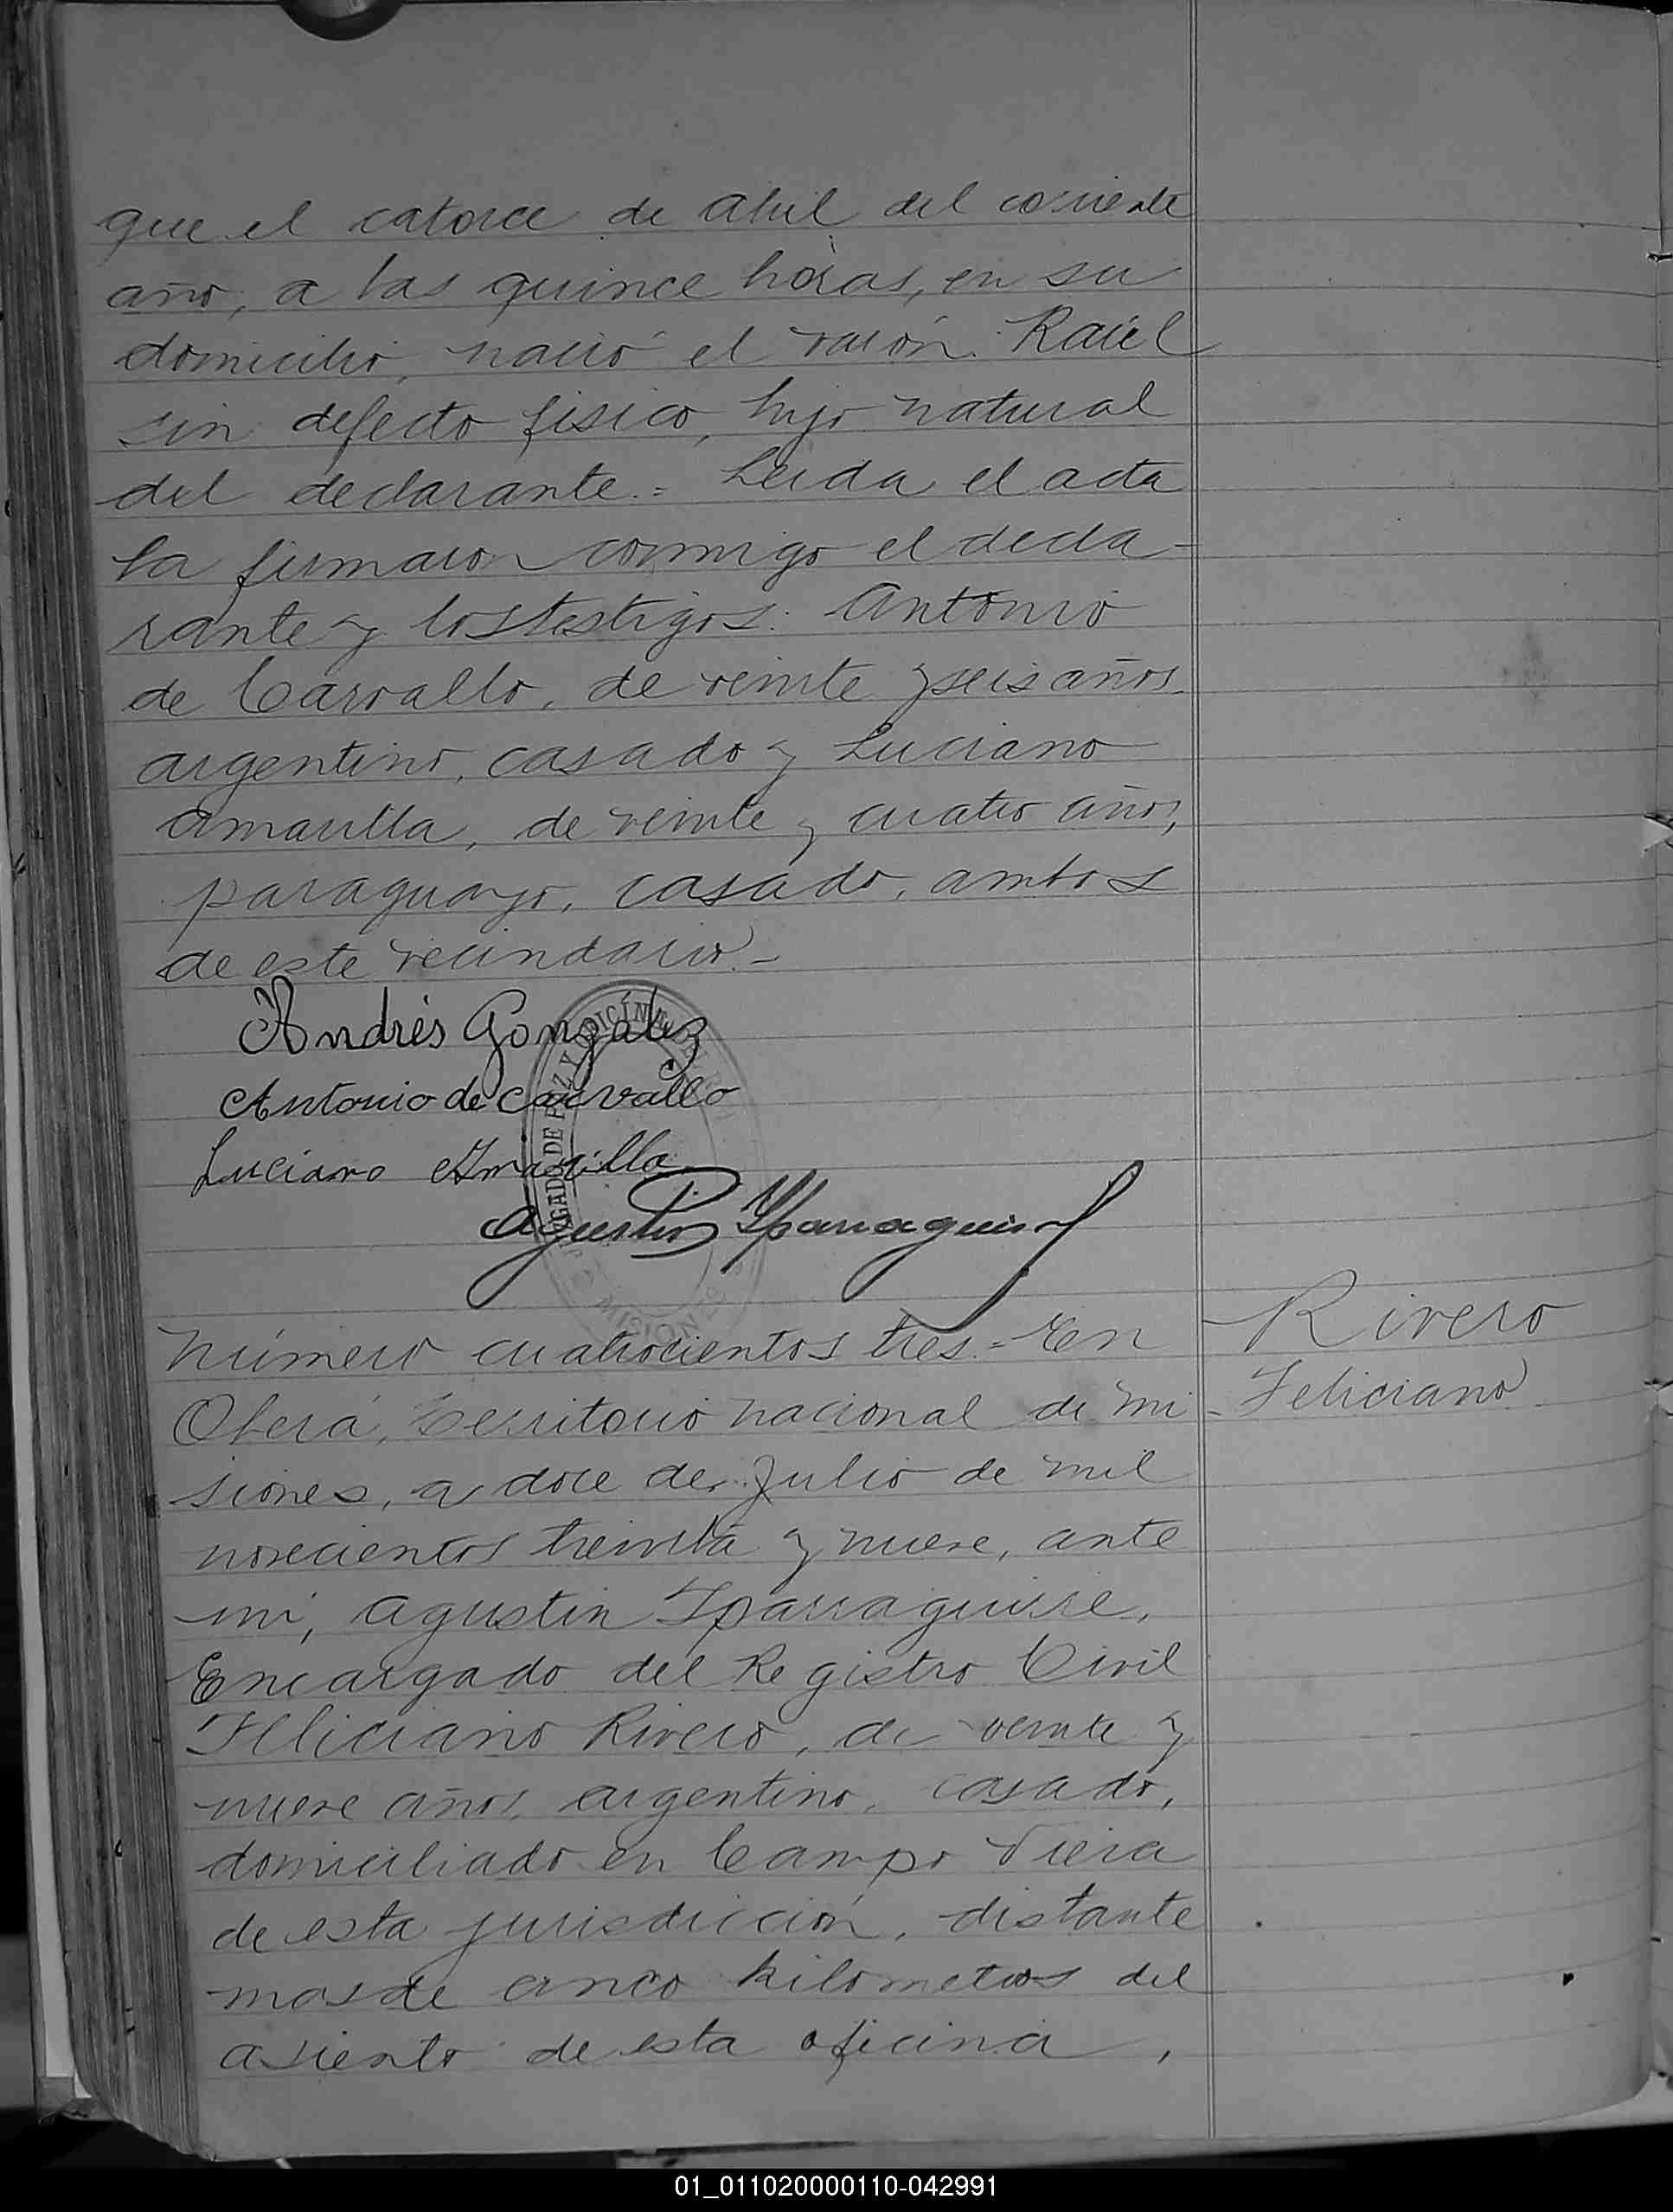 que el catorce de abril del corriente
año, a las quince horas, en su
domicilio, nació el varón: Raúl
sin defecto fisico, hijo natural
del declarante.= Leida el acta
la firmaron conmigo el decla-
rante y los testigos: Antonio
de Carvallo, de veinte y seis años
argentino, casado y Luciano
Amarilla, de veinte y cuatro años,
paraguayo, casado, ambos
de este vecindario.-
Andrés Gonzalez
Antonio de Carvallo
Luciano Amarilla
Agustin Yparraguirre
JUZGADO DE PAZ
MISIONES
Número cuatrocientos tres.= En
Oberá, Territorio nacional de Mi-
siones, a doce de Julio de mil
novecientos treinta y nueve, ante
mi, Agustin Yparraguirre,
Encargado del Registro Civil
Feliciano Rivero, de veinte y
nueve años, argentino, casado,
domiciliado en Campo Viera
de esta jurisdicción, distante
mas de cinco kilometros del
asiento de esta oficina,
Rivero
Feliciano
01_011020000110-042991